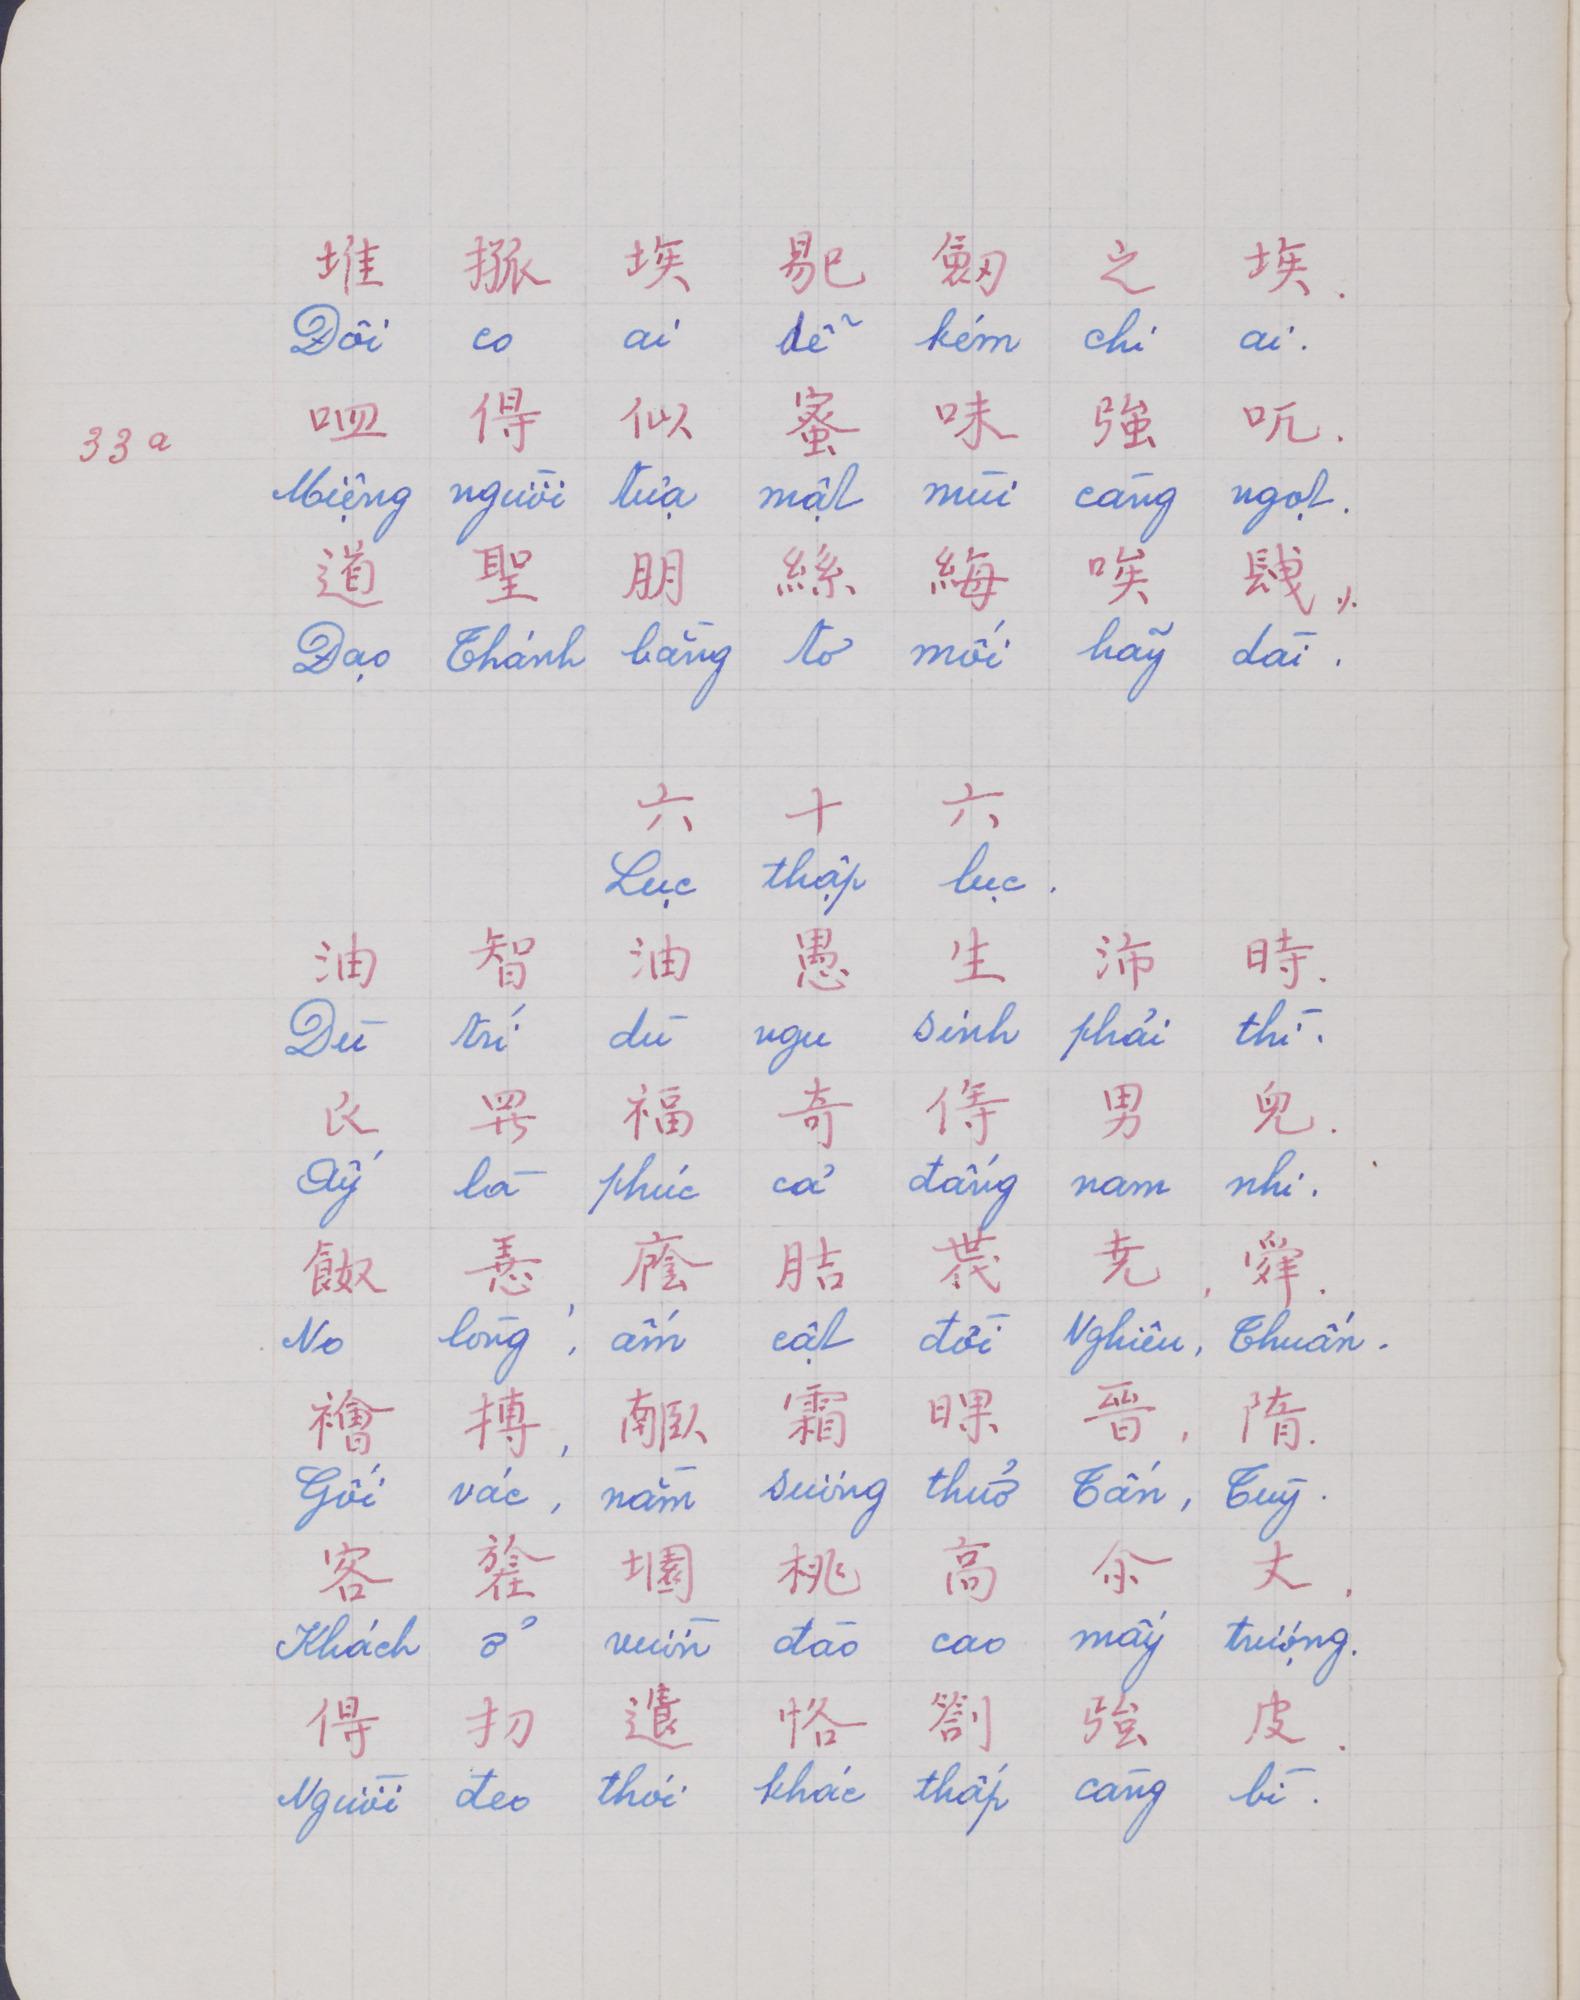 堆 㧾 埃 易巳 劔 之 埃.
Đôi co ai dễ kém chi ai.
33a
𠰘 得 似 蜜 味 強 吭.
Miệng người tựa mật mùi càng ngọt.
道 聖 朋 絲 䋦 唉 𨱽.
Đạo Thánh bằng tơ mối hãy dài.
六 十 六
Lục thập lục.
油 智 油 愚 生 沛 時.
Dù trí dù ngu sinh phải thì.
𧘇 𱺵 福 奇 待 男 兒.
Ấy là phúc cả đấng nam nhi.
𩛂 𢚸, 蔭 𦛋 𠁀 尭, 舜.
No lòng, ấm cật đời Nghiêu, Thuấn.
襘 搏, 𦣰 霜 𣋻 晋, 隋.
Gối vác, nằm sương thuở Tấn, Tùy.
客 𣄒 𡑰 桃 高 尒 丈,
Khách ở vườn đào cao mấy trượng.
得 扨 𨓐 恪 劄 強 皮.
Người đeo thói khác thấp càng bì.